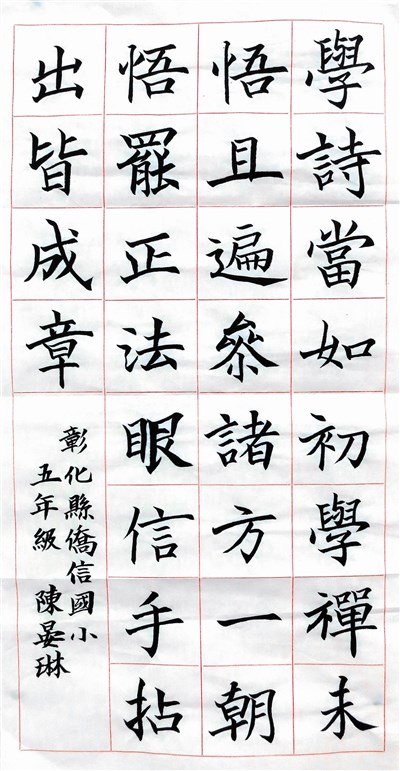 學詩當如初學禪未
悟且遍參諸方一朝
悟罷正法眼信手拈
出皆成章
彰化縣僑信國小
五年級 陳晏琳